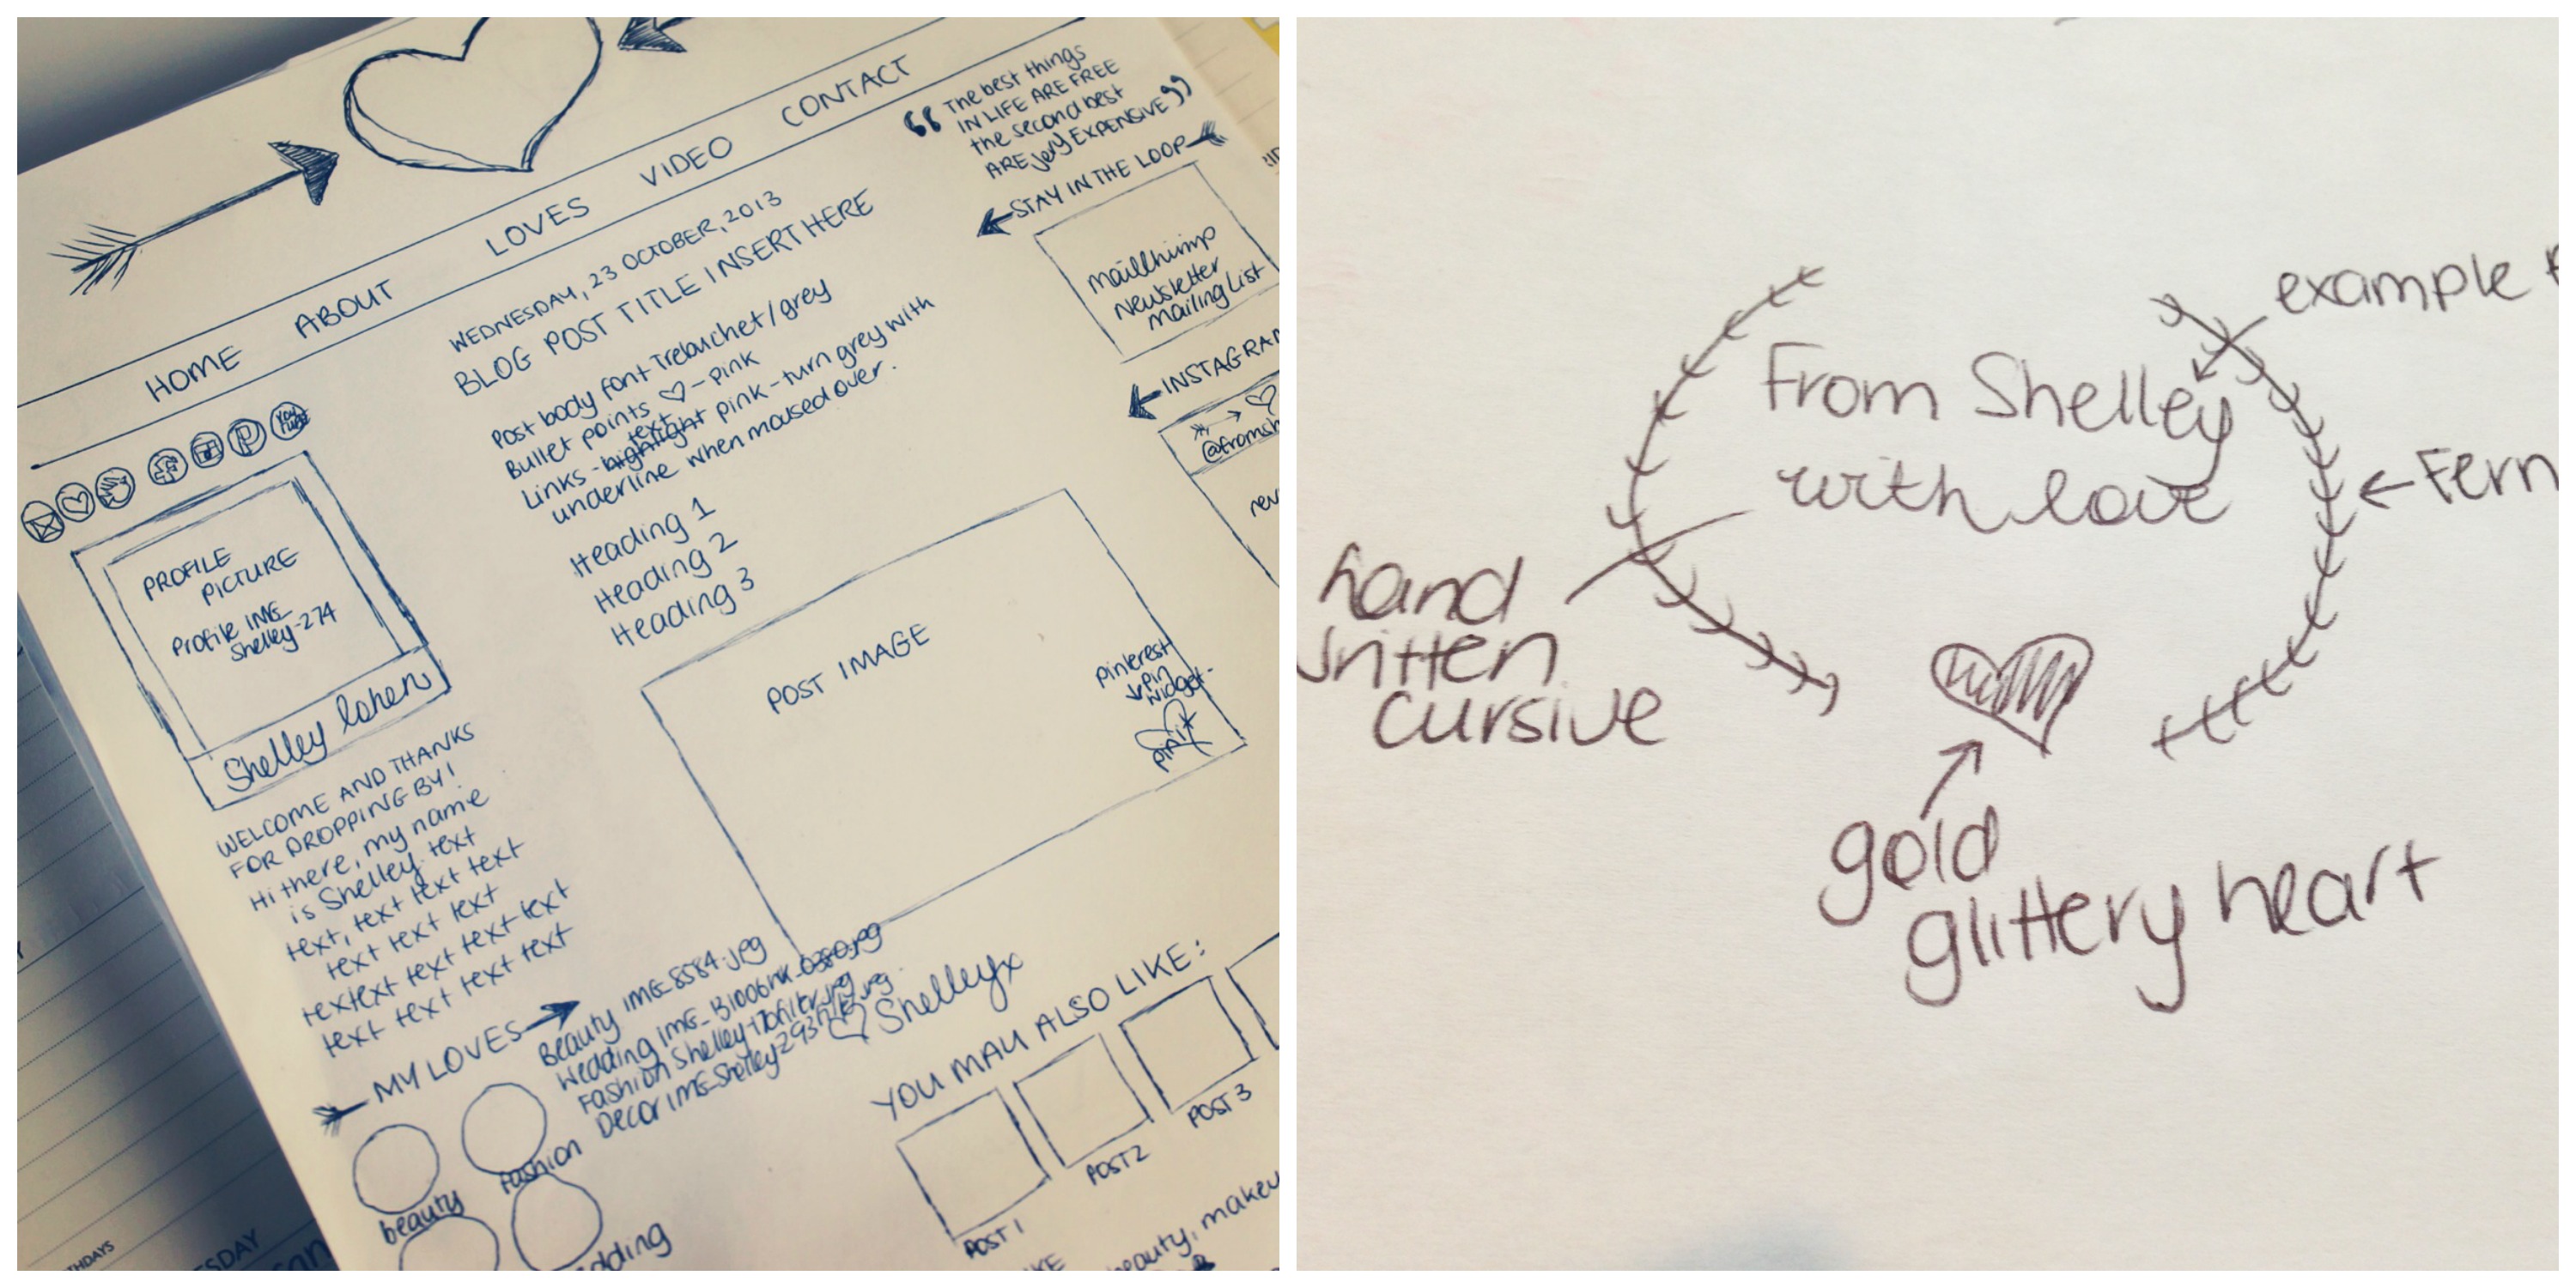 HOME
ABOUT
LOVES
VIDEO
CONTACT
PROFILE
PICTURE
Profile IMG_
Shelley-274
Shelley
WELCOME AND THANKS
FOR DROPPING BY!
Hi there, my name
is Shelley. text
text, text text text
text text text
textext text text text
text text text text
MY LOVES
beauty
fashion
WEDNESDAY, 23 OCTOBER, 2013
BLOG POST TITLE INSERT HERE
Post body font Trebuchet/grey
Bullet points ♡ - pink
text
Links - highlight pink - turn grey with
underline when moused over.
Heading 1
Heading 2
Heading 3
POST IMAGE
pinterest
pin
widget
pin it
Beauty IMG_8584.jpg
Wedding IMG_
Fashion Shelley
Decor IMG_Shelley-293
♡ Shelleyx
YOU MAY ALSO LIKE:
POST 1
POST 2
POST 3
beauty,
“ The best things
IN LIFE ARE FREE
the second best
ARE very EXPENSIVE ”
STAY IN THE LOOP
mailchimp
newsletter
mailing list
@fromsh
example
From Shelley
with love
Fern
hand
written
cursive
gold
glittery heart